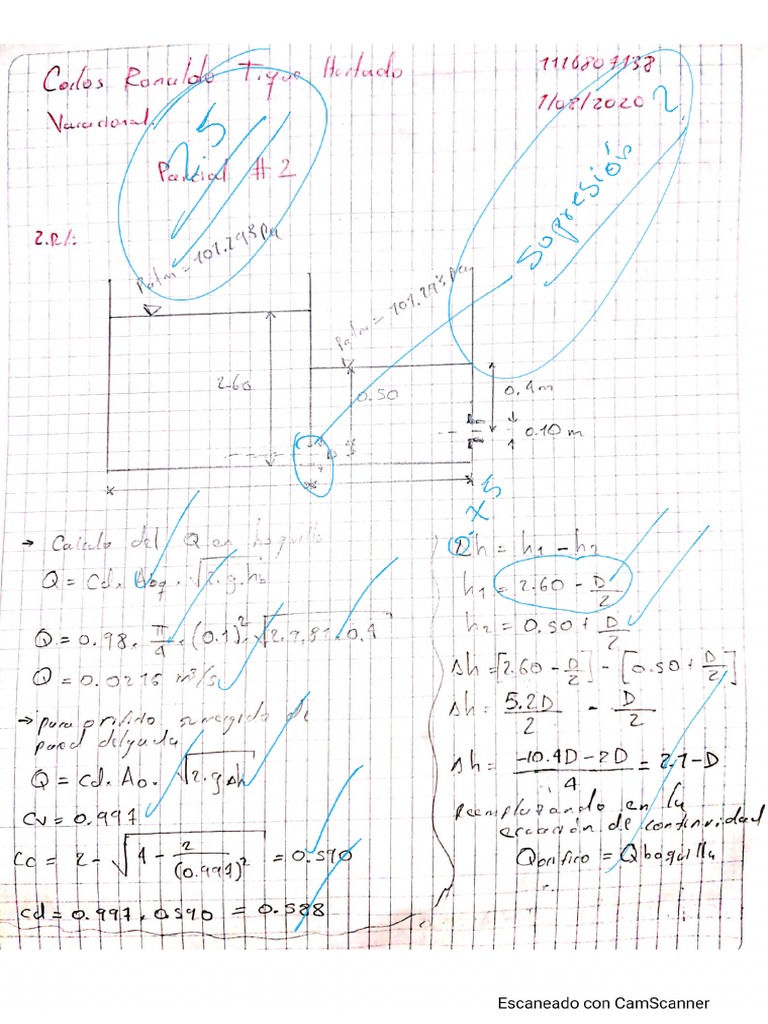 Carlos Ronaldo Tique Hurtado
1116807138
Vacacional
1/08/2020
2.5
2
Parcial #2
Supresión
2.R/:
Patm = 101.293 Pa
Patm = 101.293 Pa
2.60
0.50
0.4m
0.10 m
D
x5
→ Calculo del Q en boquilla
Q = Cd. Aoq. √2.g.ho
Q = 0.98. π/4. (0.1)². √2.9,81.0,4
Q = 0.0216 m³/s
→ para orificio sumergido de
pared delgada.
Q = Cd. Ao. √2.gΔh
Cv = 0.997
Cc = 2 - √4 - 2/(0.997)² = 0.590
cd = 0.997 . 0590 = 0.588
Δh = h1 - h2
h1 = 2.60 - D/2
h2 = 0.50 + D/2
Δh = [2.60 - D/2] - [0.50 + D/2]
Δh = 5.2D/2 - D/2
Δh = -10.4D-2D/4 = 2.1-D
Reemplazando en la
ecuación de continuidad
Qorifico = Qboquilla
Escaneado con CamScanner